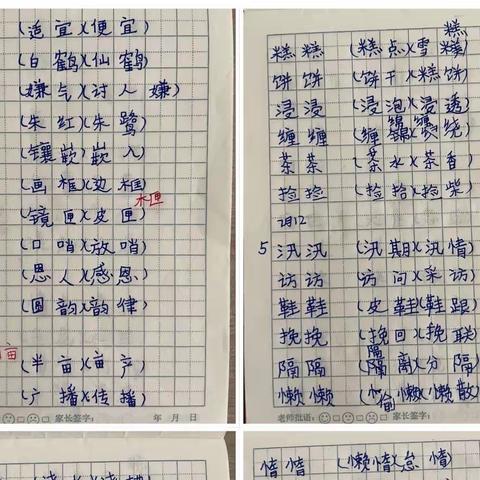 (适宜)(便宜)
(白鹤)(仙鹤)
(嫌气)(讨人嫌)
(朱红)(朱鹭)
(镶嵌)(嵌入)
(画框)(边框)
(镜匣)(皮匣)
木匣
(口哨)(放哨)
(恩人)(感恩)
(圆韵)(韵律)
亩
(半亩)(亩产)
(广播)(传播)
家长签字: 年 月 日
糕
糕 糕 (糕点)(雪糕)
饼 饼 (饼干)(糕饼)
浸 浸 (浸泡)(浸透)
缠 缠 (缠绵)(缠绕)
茶 茶 (茶水)(茶香)
捡 捡 (捡拾)(捡柴)
2月12
5 汛 汛 (汛期)(汛情)
访 访 (访问)(采访)
鞋 鞋 (皮鞋)(鞋跟)
挽 挽 (挽回)(挽联)
隔 隔 (隔离)(分隔)
懒 懒 (偷懒)(懒散)
老师批语: 家长签字:
惰 惰 (懒惰)(怠惰)